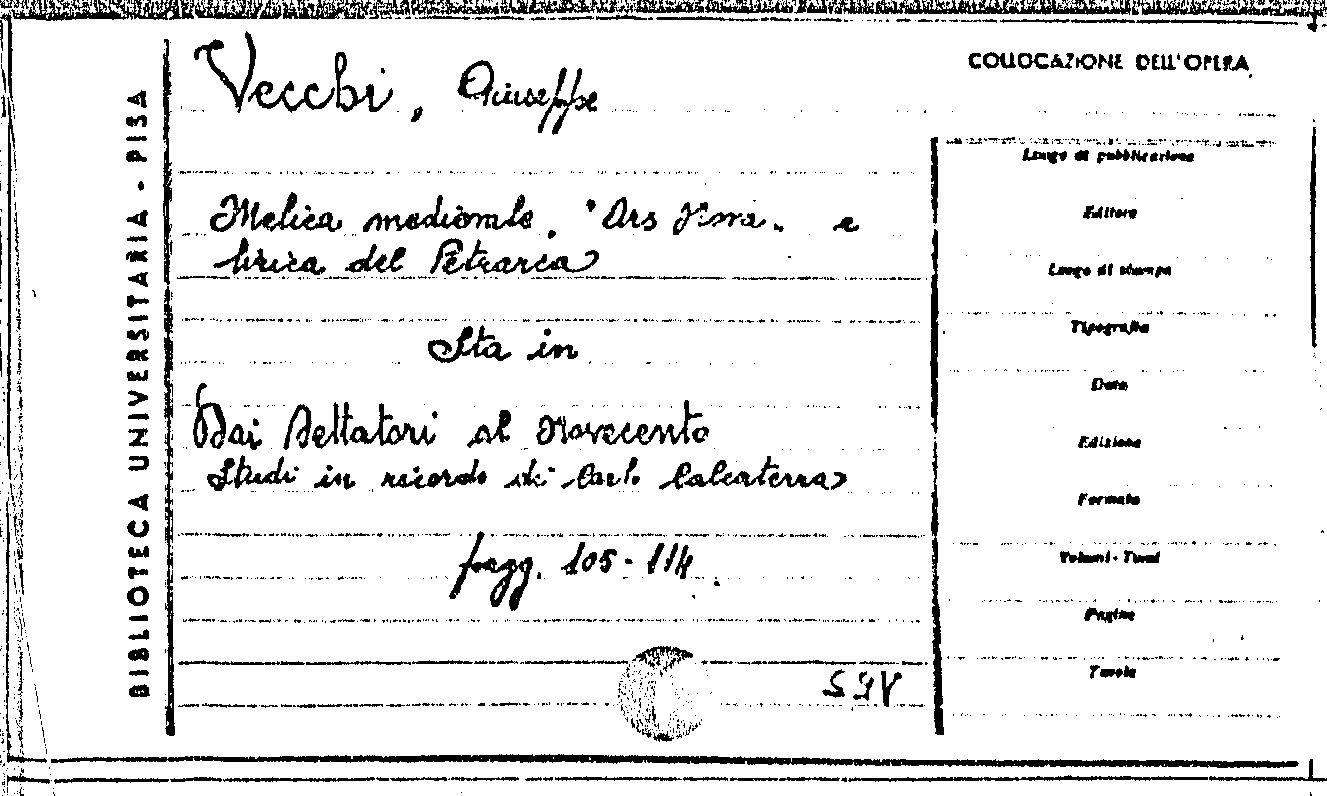 BIBLIOTECA UNIVERSITARIA - PISA
Vecchi, Giuseppe
Melica medievale, "Ars Nova" e
lirica del Petrarca
Sta in
Dai Dettatori al Novecento
Studi in ricordo di Carlo Calcaterra
pagg. 105-114.
COLLOCAZIONE DELL'OPERA
Luogo di pubblicazione
Editore
Luogo di stampa
Tipografia
Data
Edizione
Formato
Volumi - Tomi
Pagine
Tavole